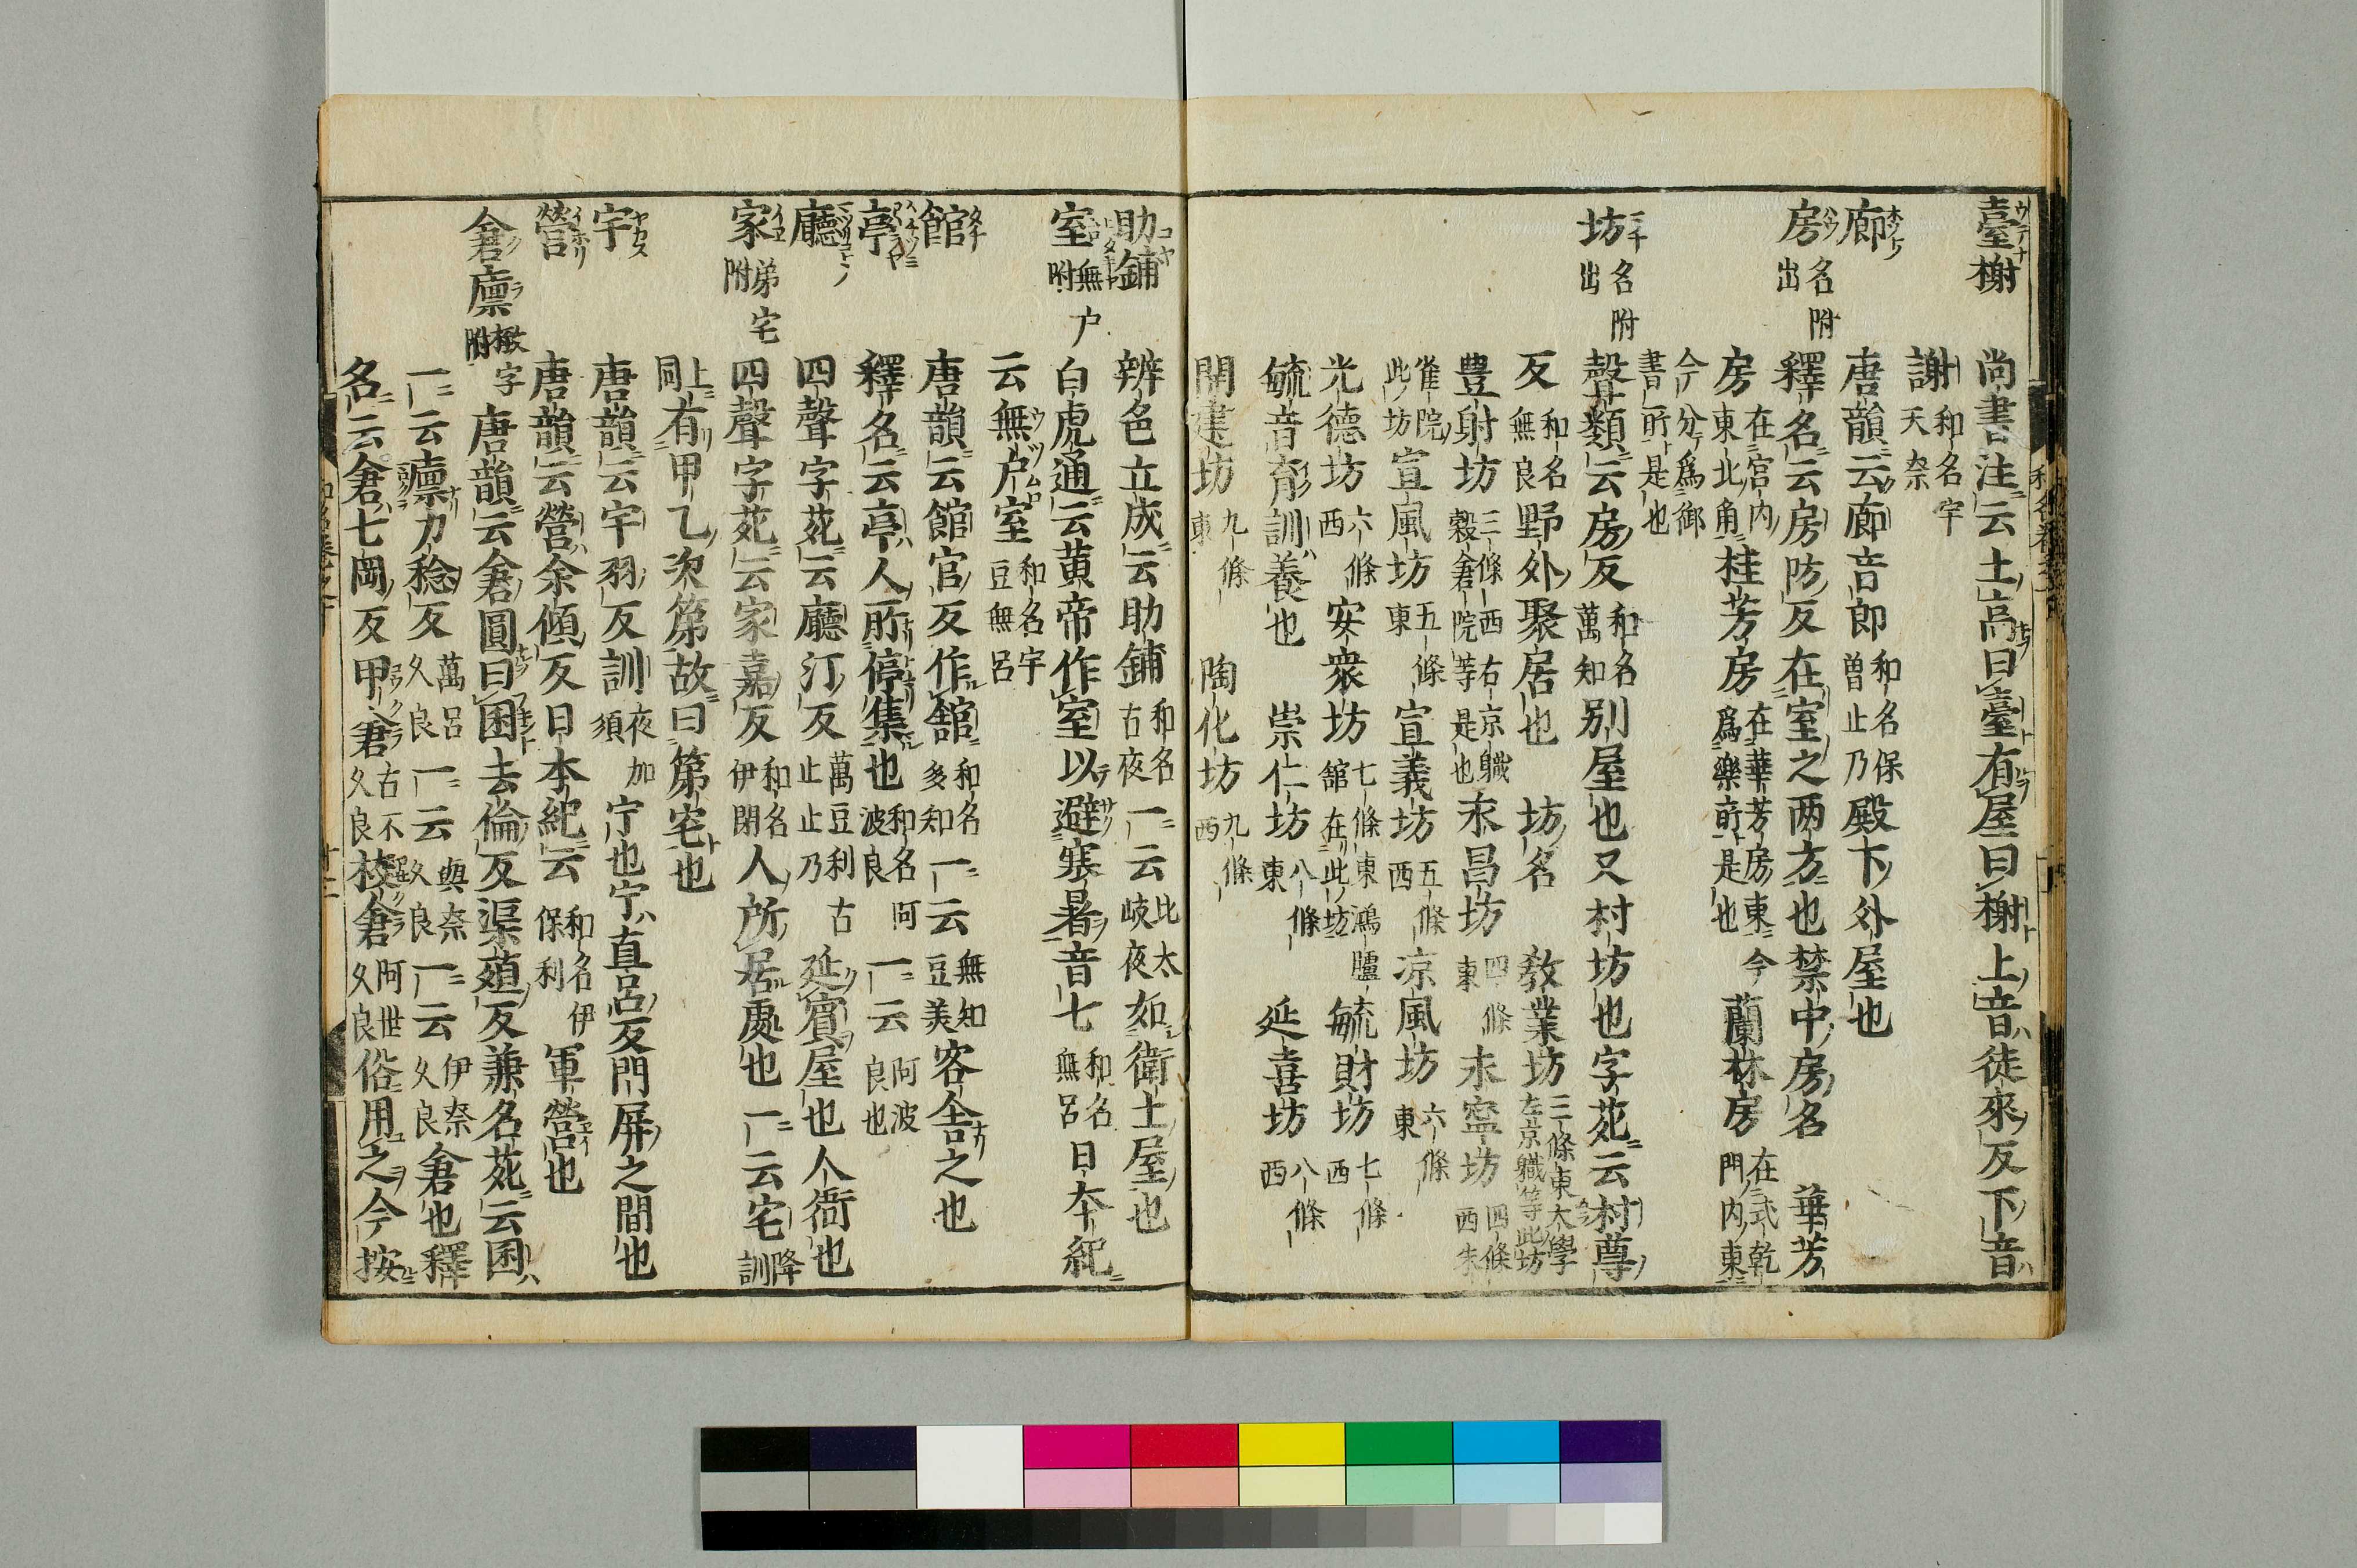 臺榭 尚書注云土高曰臺有屋曰榭上音徒來反下音
謝 和名宇天奈
廊 唐韻云廊音郎 和名保曽止乃 殿下外屋也
房 名附出 釋名云房防反在室之两方也禁中房名 華芳
房 在宮内東北角 桂芳房 在華芳房東今爲樂所是也 蘭林房 在式乾門内東
今分爲御書所是也
坊 名附出 聲類云房反 和名萬知 別屋也又村坊也字苑云村尊
反 和名無良 野外聚居也 坊名 教業坊 三條東大學左京職等此坊
豊財坊 三條西右京職穀倉院等是也 永昌坊 四條東 永寧坊 四條西朱
雀院此坊 宣風坊 五條東 宣義坊 五條西 涼風坊 六條東
光德坊 六條西 安衆坊 七條東鴻臚舘在此坊 毓財坊 七條西
毓音育訓養也 崇仁坊 八條東 延喜坊 八條西
開建坊 九條東 陶化坊 九條西
助鋪 辨色立成云助鋪 和名古夜 一云 比太岐夜 如衛士屋也
室 無戸附 白虎通云黄帝作室以避寒暑音七 和名無呂 日本紀
云無戸室 和名宇豆無呂
館 唐韻云館官反作舘 和名多知 一云 無知豆美 客舎之也
亭 釋名云亭人所停集也 和名阿波良 一云 阿波良也
廳 四聲字苑云廳汀反 萬豆利古止止乃 延賓屋也人衙也
家 弟宅附 四聲字苑云家嘉反 和名伊閉 人所居處也一云宅 降訓
上同 有甲乙次第故曰第宅也
宇 唐韻云宇羽反訓 夜加須 宁也宁直呂反門屏之間也
營 唐韻云營余傾反日本紀云 和名伊保利 軍營也
倉廩 橵字附 唐韻云倉圓曰囷去倫反渠殖反兼名苑云囷
一云廩力稔反 萬呂久良 一云 與奈久良 一云 伊奈久良 倉也釋
名云倉七岡反甲倉 古不久良 校倉 阿世久良 俗用之今按